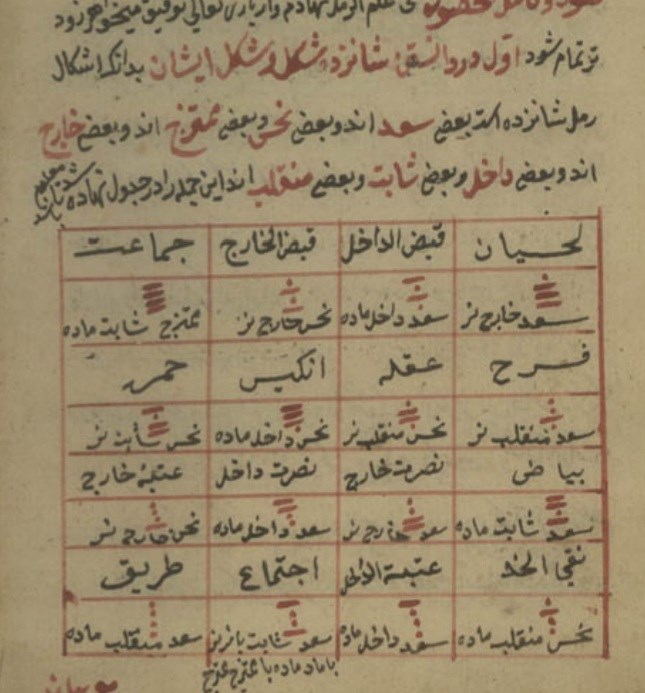 علم الرمل نهادم و از باری تعالی توفیق میخواهم زود
تر تمام شود اول در دانستن شانزده شکل و شکل ایشان بدانکه اشکال
رمل شانزده است بعضی سعد اند و بعضی نحس و بعضی ممتزج اند و بعضی خارج
اند و بعضی داخل و بعضی ثابت و بعضی منقلب اند این جمله را در جدول نهاده شد تا معلوم باشد
لحیان قبض الداخل قبض الخارج جماعت
سعد خارج نر سعد داخل ماده نحس خارج نر ممتزج ثابت ماده
فرح عقله انکیس حمره
سعد منقلب نر نحس منقلب نر نحس داخل ماده نحس ثابت نر
بیاض نصرت خارج نصرت داخل عتبة خارج
سعد ثابت ماده سعد خارج نر سعد داخل ماده نحس خارج نر
نقی الخد عتبة الداخل اجتماع طریق
نحس منقلب ماده سعد داخل ماده سعد ثابت با نر نر سعد منقلب ماده
با ماده ماده با ممتزج ممتزج